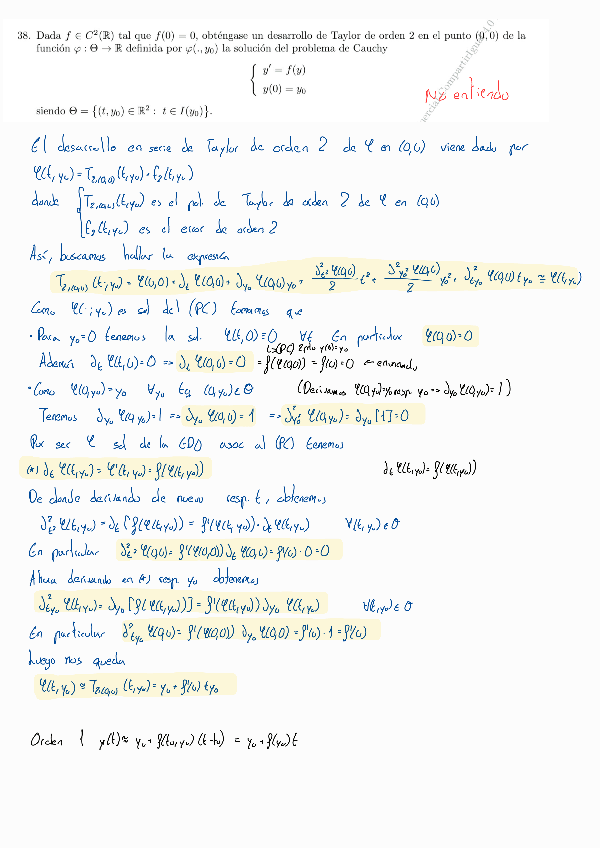 38. Dada f ∈ C²(ℝ) tal que f(0) = 0, obténgase un desarrollo de Taylor de orden 2 en el punto (0, 0) de la
función φ : Θ → ℝ definida por φ(., y₀) la solución del problema de Cauchy
{ y′ = f(y)
y(0) = y₀
No entiendo
siendo Θ = {(t, y₀) ∈ ℝ² : t ∈ I(y₀)}.
El desarrollo en serie de Taylor de orden 2 de φ en (0,0) viene dado por
φ(t,y₀) = T₂,₍₀,₀₎(t,y₀) + ε₂(t,y₀)
donde { T₂,₍₀,₀₎(t,y₀) es el pol. de Taylor de orden 2 de φ en (0,0)
ε₂(t,y₀) es el error de orden 2
Así, buscamos hallar la expresión
T₂,₍₀,₀₎(t,y₀) = φ(0,0) + ∂ₜ φ(0,0) + ∂y₀ φ(0,0) y₀ + ∂²ₜ² φ(0,0)/2 · t² + ∂²y₀² φ(0,0)/2 y₀² + ∂²ty₀ φ(0,0) t y₀ ≃ φ(t,y₀)
Como φ(·,y₀) es sol del (PC) tenemos que
· Para y₀=0 tenemos la sol. φ(t,0)=0 ∀t En particular φ(0,0)=0
Además ∂ₜ φ(t,0)=0 => ∂ₜ φ(0,0)=0 = f(φ(0,0)) = f(0)=0 ← enunciado
· Como φ(0,y₀)=y₀ ∀y₀ tq (0,y₀) ∈ Θ (Derivamos φ(0,y₀)=y₀ resp. y₀ => ∂y₀ φ(0,y₀)=1)
Tenemos ∂y₀ φ(0,y₀)=1 => ∂y₀ φ(0,0)=1 => ∂²y₀² φ(0,y₀) = ∂y₀ [1] = 0
Por ser φ sol de la EDO asoc al (PC) tenemos
(*) ∂ₜ φ(t,y₀) = φ'(t,y₀) = f(φ(t,y₀)) ∂ₜ φ(t,y₀) = f(φ(t,y₀))
De donde derivando de nuevo resp. t, obtenemos
∂²ₜ² φ(t,y₀) = ∂ₜ [f(φ(t,y₀))] = f'(φ(t,y₀)) · ∂ₜ φ(t,y₀) ∀(t,y₀) ∈ Θ
En particular ∂²ₜ² φ(0,0) = f'(φ(0,0)) ∂ₜ φ(0,0) = f'(0) · 0 = 0
Ahora derivando en (*) resp. y₀ obtenemos
∂²ty₀ φ(t,y₀) = ∂y₀ [f(φ(t,y₀))] = f'(φ(t,y₀)) ∂y₀ φ(t,y₀) ∀(t,y₀) ∈ Θ
En particular ∂²ty₀ φ(0,0) = f'(φ(0,0)) ∂y₀ φ(0,0) = f'(0) · 1 = f'(0)
Luego nos queda
φ(t,y₀) ≈ T₂,₍₀,₀₎(t,y₀) = y₀ + f'(0) t y₀
Orden 1 y(t) ≈ y₀ + f(t₀,y₀)(t-t₀) = y₀ + f(y₀)t